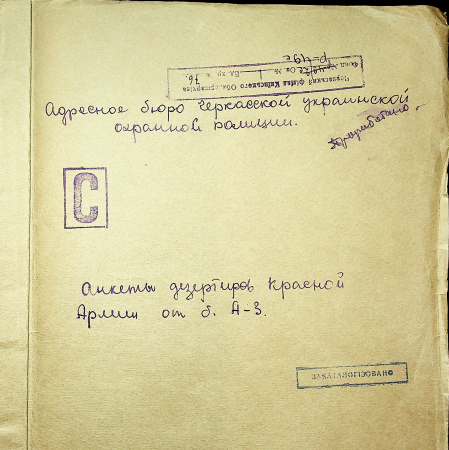 Черкаський філіал Київського Обл.держархіва
Фонд № Р-49с Оп. № 1 Од. хр. № 76.
Адресное бюро Черкасской украинской
охранной полиции.
С
Анкеты дезертиров Красной
Армии от б. А-З.
ЗАКАТАЛОГІЗОВАНО